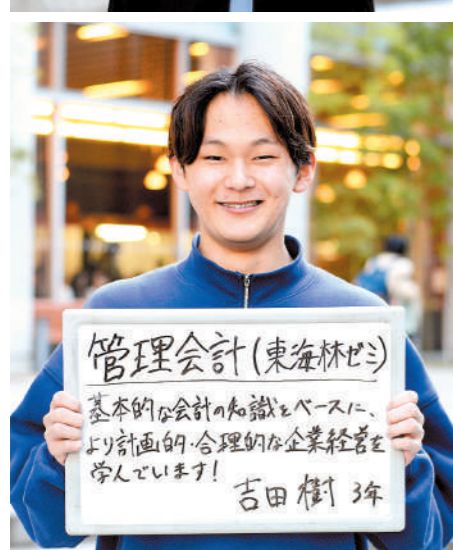 管理会計(東海林ゼミ)
基本的な会計の知識をベースに、
より計画的・合理的な企業経営を
学んでいます!
吉田 樹 3年